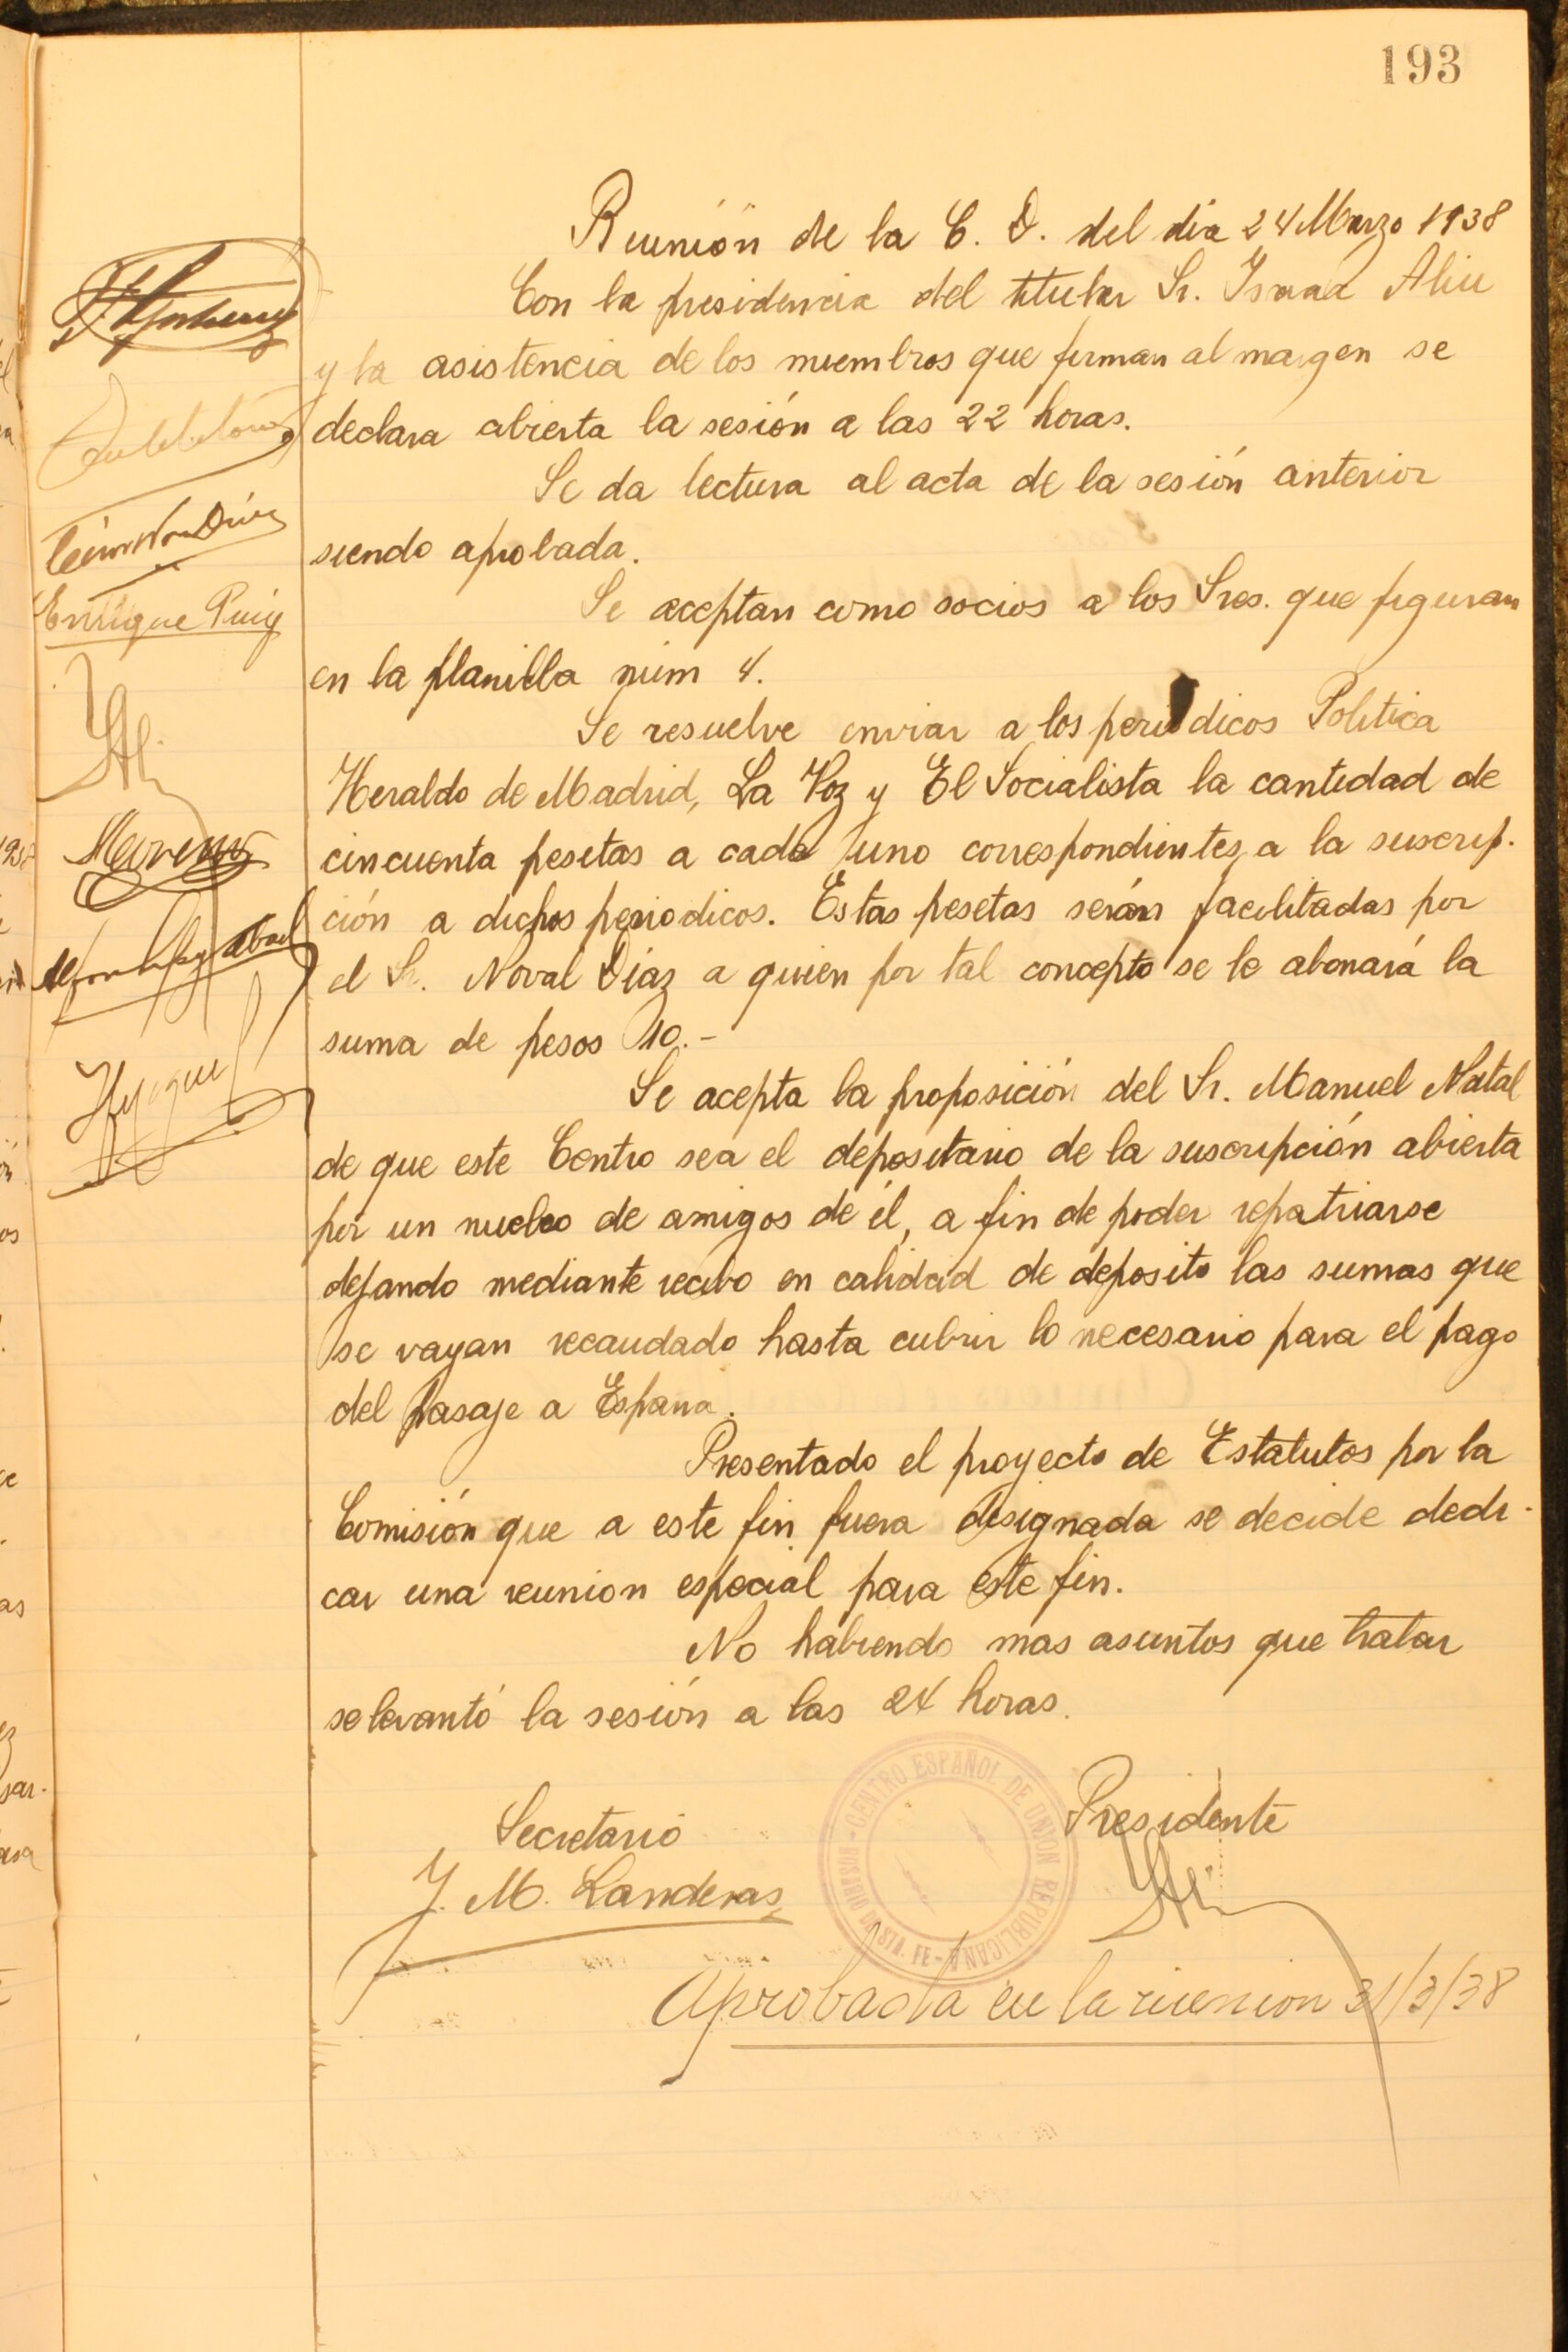 193
Reunión de la C. D. del día 24 Marzo 1938
Con la presidencia del titular Sr. Isaac Aliu
y la asistencia de los miembros que firman al margen se
declara abierta la sesión a las 22 horas.
Se da lectura al acta de la sesión anterior
siendo aprobada.
Enrique Puig
Se aceptan como socios a los Sres. que figuran
en la planilla núm 4.
Se resuelve enviar a los periodicos Politica
Heraldo de Madrid, La Voz y El Socialista la cantidad de
Moreno
cincuenta pesetas a cada uno correspondientes a la suscrip-
ción a dichos periodicos. Estas pesetas serán facilitadas por
el Sr. Noval Díaz a quien por tal concepto se le abonará la
suma de pesos 10.-
Se acepta la proposición del Sr. Manuel Natal
de que este Centro sea el depositario de la suscripción abierta
por un nucleo de amigos de él, a fin de poder repatriarse
dejando mediante recibo en calidad de deposito las sumas que
se vayan recaudado hasta cubrir lo necesario para el pago
del pasaje a España.
Presentado el proyecto de Estatutos por la
Comisión que a este fin fuera designada se decide dedi-
car una reunion especial para este fin.
No habiendo mas asuntos que tratar
se levantó la sesión a las 24 horas.
CENTRO ESPAÑOL DE UNION REPUBLICANA
Secretario
Presidente
J. M. Landeras
Aprobada en la reunion 31/3/38